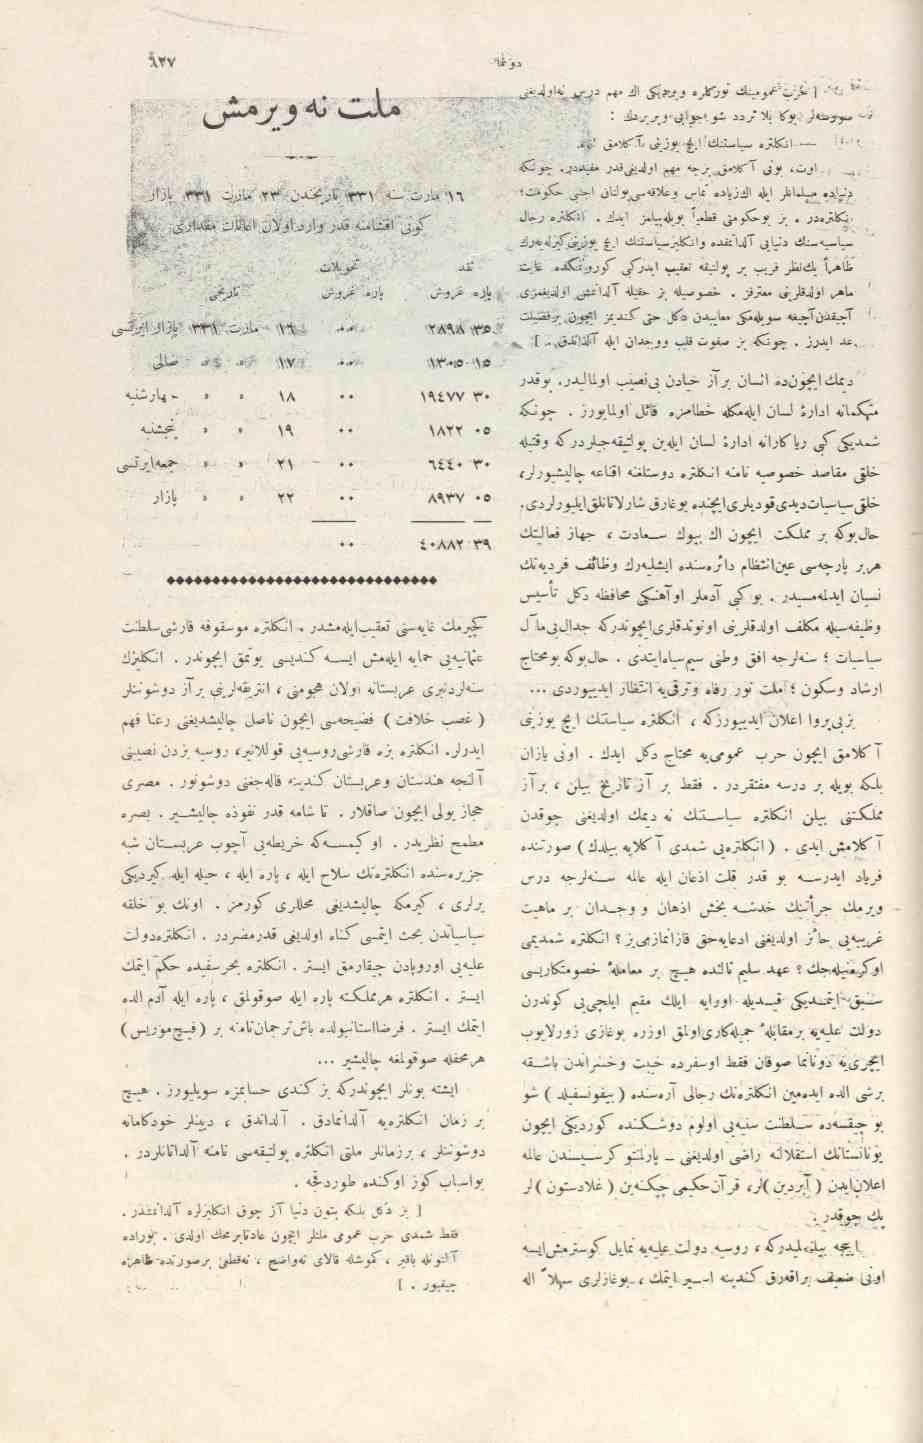 دوننما
٩٢٧
[ حرب عمومینك تورکلره ویردیکی اك مهم درس نه اولدیغنی
سویلسه لر بوکا بلا تردد شو جوابی ویریردك :
— انکلتره سیاستنك ایچ یوزینی آکلامق
اوت، بونی آکلامق بزجه مهم اولدیغی قدر مفیددر. چونکه
دنیاده مسلمانلر ایله اك زیاده تماس وعلاقه سی بولنان اجنبی حکومت؛
انکلتره در . بز بو حکومتی قطعیاً بویله بیلمز ایدك . انکلتره رجال
سیاسیه سنك دنیایی آلداتمقده وانکلیز سیاستنك ایچ یوزینی کیزلیه رك
ظاهراً یك نظر فریب بر پولتیقه تعقیب ایدرکبی کورونمکده غایت
ماهر اولدقلرینی معترفز . خصوصیله بز حقیله آلدانمش اولدیغمزی
آچیقدن آچیغه سویله مکی معایبدن دکل حتی کندیمز ایچون بر فضیلت
عد ایدرز . چونکه بز صفوت قلب ووجدان ایله آلداندق . ]
دیمك ایچون ده انسان بر آز حیادن بی نصیب اولمالیدر. بوقدر
متهکمانه ادارهٔ لسان ایله مکله خطامزه قائل اولمایورز . چونکه
شمدیکی کبی ریاکارانه ادارهٔ لسان ایله ین پولتیقه جیلر درکه وقتیله
خلقی مقاصد خصوصیه نامنه انکلتره دوستلغنه اقناعه چالیشیورلر،
خلقی سیاسیات دیدی قودیلری ایچنده بوغارق شارلاتانلق ایلیورلردی.
حال بوکه بر مملکت ایچون اك بیوك سعادت ، جهاز فعالیتك
هر بر پارچه سی عین انتظام دائره سنده ایشلیه رك وظائف فردیه نك
نسیان ایدلمه مسیدر . بو کبی آدملر او آهنکی محافظه دکل تأسیس
وظیفه سیله مکلف اولدقلرینی اونوتدقلری ایچوندرکه جدال بی مآل
سیاسیات ؛ سنه لرجه افق وطنی سیم سیاه ایتدی . حال بوکه بو محتاج
ارشاد وسکون ؛ ملت نور رفاه وترقی یه انتظار ایدییوردی ...
بز بی پروا اعلان ایدییورزکه ، انکلتره سیاستنك ایچ یوزینی
آکلامق ایچون حرب عمومی یه محتاج دکل ایدك . اونی یازان
بلکه بویله بر درسه مفتقردر . فقط بر آز تاریخ بیلن ، بر آز
مملکتنی بیلن انکلتره سیاستنك نه دیمك اولدیغنی چوقدن
آکلامش ایدی . ( انکلتره یی شمدی آکلایه بیلدك ) صورتنده
فریاد ایدرسه بو قدر قلت اذعان ایله عالمه سنه لرجه درس
ویرمك جرأتینك خدشه بخش اذهان و وجدان بر ماهیت
غریبه یی حائز اولدیغی ادعایه حق قازانمازمی یز ؟ انکلتره شمدیمی
اوکره نیله جك ؟ عهد سلیم ثالثده هیچ بر معاملهٔ خصومتکاریسی
سبق ایتمدیکی قیدیله اورایه ایلك مقیم ایلچی یی کوندرن
دولت علیه یه بر مقابلهٔ جمیله کاری اولمق اوزره بوغازی زورلایوب
ایچری یه دونانما صوقان فقط اوسفرده خیبت وخسراندن باشقه
بر شی الده ایده مین انکلتره نك رجالی آره سنده ( بیقونسفیلد ) شو
بو چیقسه ده سلطنت سنیه یی اولوم دوشکنده کوردیکی ایچون
یونانستانك استقلالنه راضی اولدیغنی _ پارلمنتو کرسیسندن عالمه
اعلان ایدن ( آبردین )لر، قرآن حکیمی چیکنه ین ( غلادستون )لر
پك چوقدر .
ایجه بیلنملیدرکه ، روسیه دولت علیه یه تمایل کوسترمش ایسه
اونی ضعیف براقه رق کندینه اسیر ایتمك ، بوغازلری سهلاً اله
ملت نه ویرمش
١٦ مارت سنه ٣٣١ تاریخندن ٢٣ مارت ٣٣١ پازار
کونی اقشامنه قدر وارد اولان اعانات مقداری :
نقد تحویلات
پاره غروش پاره غروش تاریخی
٣٥ ٢٨٩٨ ٠٠ ١٦ مارت ٣٣١ پازار ایرتسی
١٥ ١٣٠٥ ٠٠ ١٧ » » صالی
٣٠ ١٩٤٧٧ ٠٠ ١٨ » » چهارشنبه
٠٥ ١٨٢٢ ٠٠ ١٩ » » پنجشنبه
٣٠ ٦٤٤٠ ٠٠ ٢١ » » جمعه ایرتسی
٠٥ ٨٩٣٧ ٠٠ ٢٢ » » پازار
٣٩ ٤٠٨٨٢ ٠٠
کچیرمك غایه سنی تعقیب ایله مشدر . انکلتره موسقوفه قارشی سلطنت
عثمانیه یی حمایه ایله مش ایسه کندیسی یوتمق ایچوندر . انکلیزك
سنه لردنبری عربستانه اولان هجومنی ، انتریقه لرینی بر آز دوشوننلر
( غصب خلافت ) فضیحه سی ایچون ناصل چالیشدیغنی رعنا فهم
ایدرلر. انکلتره بزه قارشی روسیه یی قوللانیر، روسیه بزدن نصیبنی
آلنجه هندستان وعربستان کندینه قاله جغنی دوشونور . مصری
حجاز یولی ایچون صاقلار . تا شامه قدر نفوذه چالیشیر . بصره
مطمح نظریدر . او کیمسه که خریطه یی آچوب عربستان شبه
جزیره سنده انکلتره نك سلاح ایله ، پاره ایله ، حیله ایله کیردیکی
یرلری ، کیرمکه چالیشدیغی محللری کورمز . اونك بو خلقه
سیاسیاتدن بحث ایتمسی کناه اولدیغی قدر مضردر . انکلتره دولت
علیه یی اوروپادن چیقارمق ایستر . انکلتره بحر سفیده حکم ایتمك
ایستر . انکلتره هر مملکته پاره ایله صوقولمق ، پاره ایله آدم الده
ایتمك ایستر . فرضا استانبولده باش ترجمان نامنه بر ( فیچ موریس )
هر محفله صوقولمغه چالیشیر ...
ایشته بونلر ایچوندرکه بز کندی حسابمزه سویلیورز . هیچ
بر زمان انکلتره یه آلدانمادق . آلداندق ، دیینلر خودکامانه
دوشوننلر ، بر زمانلر ملتی انکلتره پولتیقه سی نامنه آلداتانلردر .
بو اسباب کوز اوکنده طوردقجه .
[ بز دکل بلکه بتون دنیا آز چوق انکلیزلره آلدانمشدر .
فقط شمدی حرب عمومی ملتلر ایچون عادتا بر محك اولدی . بوراده
آلتونله باقیر ، کموشله قالای نه واضح ، نه قطعی بر صورتده ظاهره
چیقیور . ]